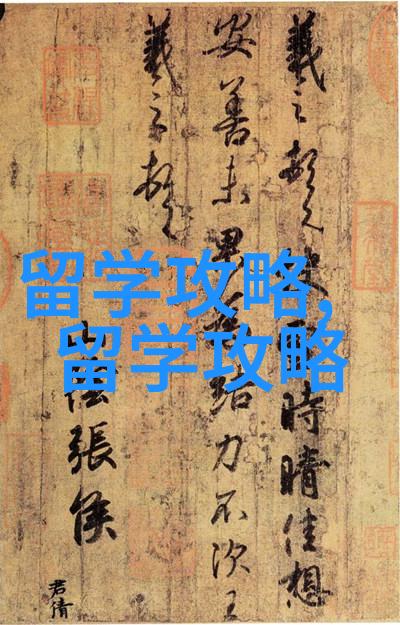 留学攻略,
留学攻略
羲之頓首時晴佳想
安善未果為結力不次王
羲之頓首
山陰張侯
君倩